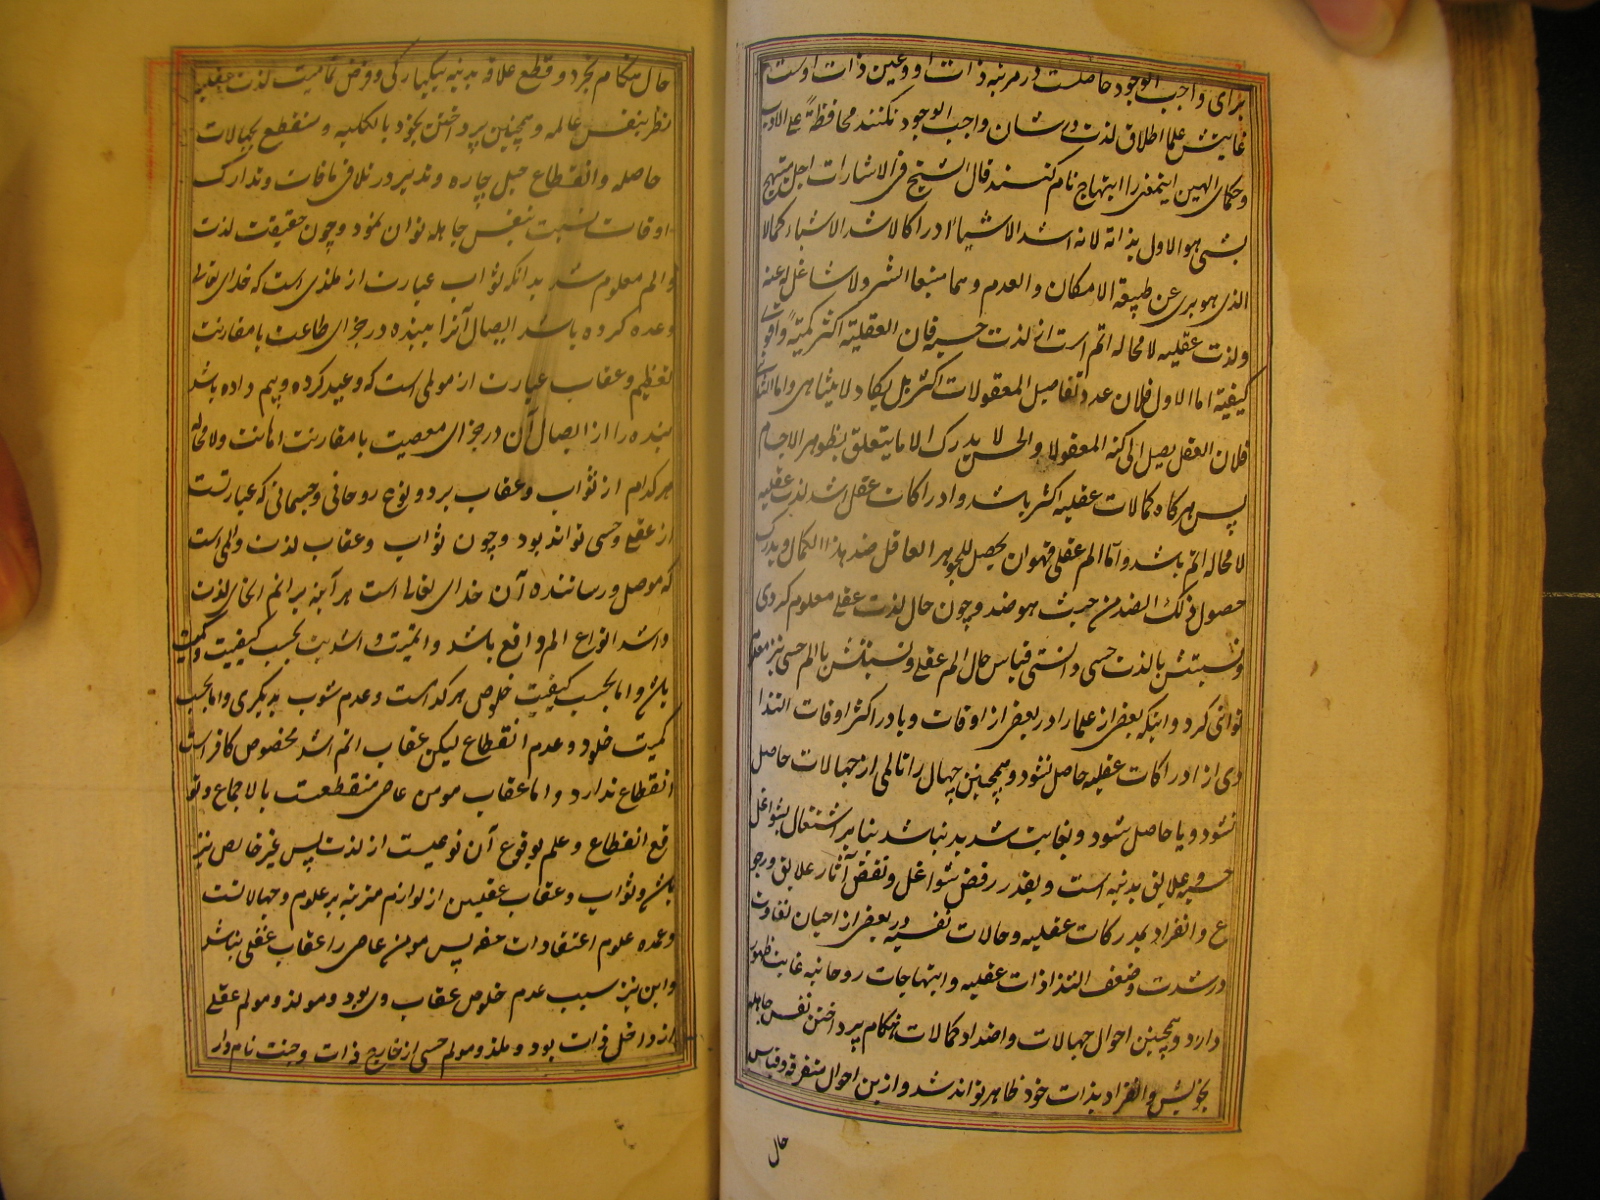 برای واجب الوجود حاصلست در مرتبه ذات او و عین ذات اوست
غایتش علما اطلاق لذت در شان واجب الوجود نکنند محافظة علی الادب
و حکمای الهیین اینمعنی را ابتهاج نام کنند قال الشیخ فی الاشارات اجل مبتهج
بشئ هو الاول بذاته لانه اشد الاشیاء ادراکا لاشد الاشیاء کمالا
الذی هو بری عن طبیعة الامکان و العدم و هما منبعا الشر و لا شاغل له عنه
و لذت عقلیه لا محاله اتم است از لذت حسیه فان العقلیة اکثر کمیة و اقوی
کیفیة اما الاول فلان عدد تفاصیل المعقولات اکثر بل یکاد لا یتناهی و اما الثانی
فلان العقل یصل الی کنه المعقولا و الحس لا یدرک الا ما یتعلق بظواهر الاجسام
پس هرگاه کمالات عقلیه اکثر باشد و ادراکات عقل اشد لذت عقلیه
لا محاله اتم باشد و اما الم عقلی فهو ان یحصل للجوهر العاقل ضد هذا الکمال و یدرک
حصول ذلک الضد من حیث هو ضد و چون حال لذت عقلی معلوم کردی
و نسبتش با لذت حسی دانستی قیاس حال الم عقلی و نسبتش با الم حسی نیز معلوم
توانی کرد و اینکه بعضی از علما را در بعضی از اوقات و یا در اکثر اوقات التذا
ذی از ادراکات عقلیه حاصل نشود و همچنین جهال را تالمی از جهالات حاصل
نشود و یا حاصل شود و بغایت شدید نباشد بنابر اشتغال بشواغل
حسیه و علایق بدنیه است و بقدر رفض شواغل و نقض آثار علایق و رجو
ع و انفراد بمدرکات عقلیه و حالات نفسیه در بعضی از احیان تفاوت
در شدت و ضعف التذاذات عقلیه و ابتهاجات روحانیه غایت ظهور
دارد و همچنین احوال جهالات و اضداد کمالات هنگام پرداختن نفس جاهله
بخویش و انفراد بذات خود ظاهر تواند شد و ازین احوال متفرقه قیاس
حال
حال هنکام تجرد و قطع علاقه بدنیه بیکبارکی و فرض تمامیت لذت عقلیه
نظر بنفس عالمه و همچنین پرداختن بخود بالکلیه و منقطع بجهالات
حاصله و انقطاع حبل چاره و تدبیر در تلافی مافات و تدارک
اوقات نسبت بنفس جاهله توان نمود و چون حقیقت لذت
و الم معلوم شد بدانکه ثواب عبارت از ملذی است که خدای تعالی
وعده کرده باشد ایصال آنرا ببنده در جزای طاعت با مقارنت
تعظیم و عقاب عبارت از مولمی است که وعید کرده و بیم داده باشد
بنده را از ایصال آن در جزای معصیت با مقارنت اهانت و لا محاله
هر کدام از ثواب و عقاب بر دو نوع روحانی و جسمانی که عبارتست
از عقلی و حسی تواند بود و چون ثواب و عقاب لذت و المی است
که موصل و رساننده آن خدای تعالی است هر آینه بر اتم انحای لذت
و اشد انواع الم واقع باشد و اتمیت و اشدیت بحسب کیفیت و کمیت
باشد و اما بحسب کیفیت خلوص هر کدست و عدم شوب به دیکری و اما بحسب
کمیت خلود و عدم انقطاع لیکن عقاب اتم اشد مخصوص کافر است
انقطاع ندارد و اما عقاب مومن عاصی منقطعست بالاجماع و تو
قع انقطاع و علم بوقوع آن نوعیست از لذت پس غیر خالص نیز
باشد و ثواب و عقاب عقلیین از لوازم مترتبه بر علوم و جهالاتست
و عمده علوم اعتقادات حقه پس مومن عاصی را عقاب عقلی نباشد
و این نیز سبب عدم خلوص عقاب وی بود و مولذ و مولم عقلی
از داخل ذات بود و ملذ و مولم حسی از خارج ذات و جنت نام دار